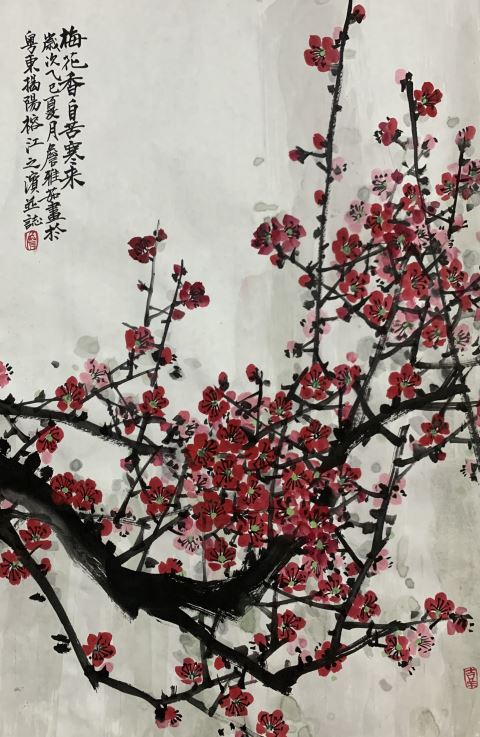 梅花香自苦寒来
歲次乙巳夏月詹雅茹畫於
粤東揭陽榕江之濱並誌